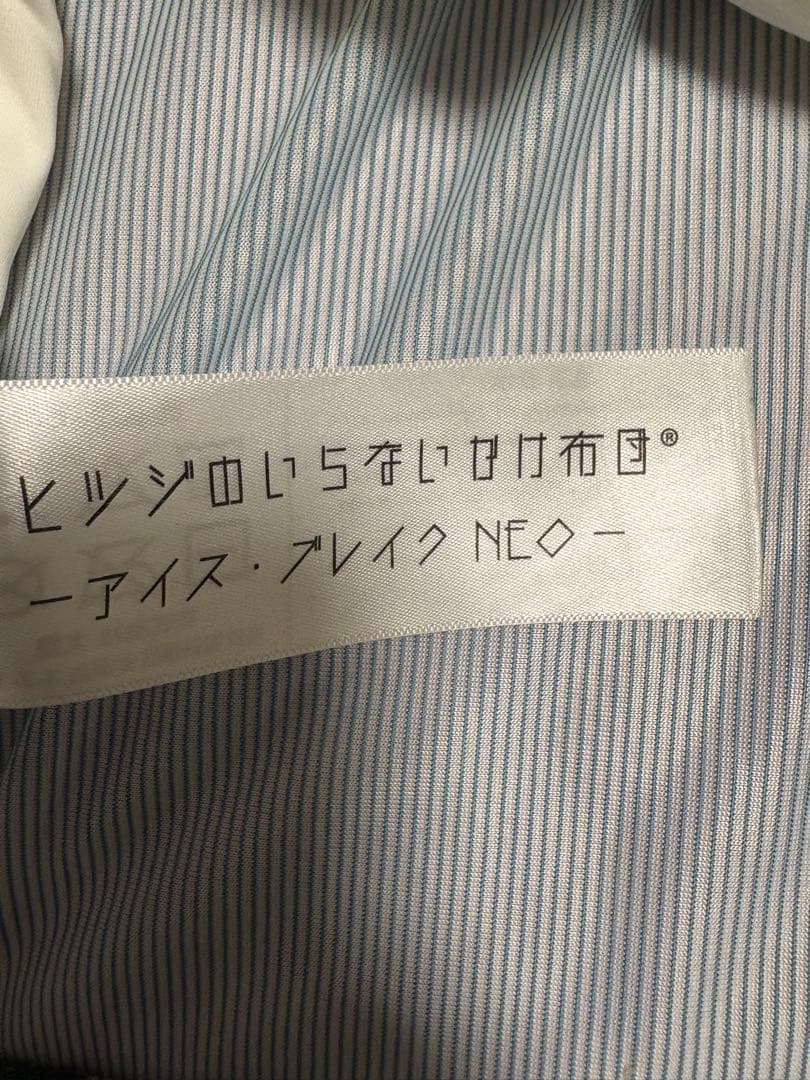 ヒツジのいらないかけ布団®
ーアイス・ブレイク NEOー